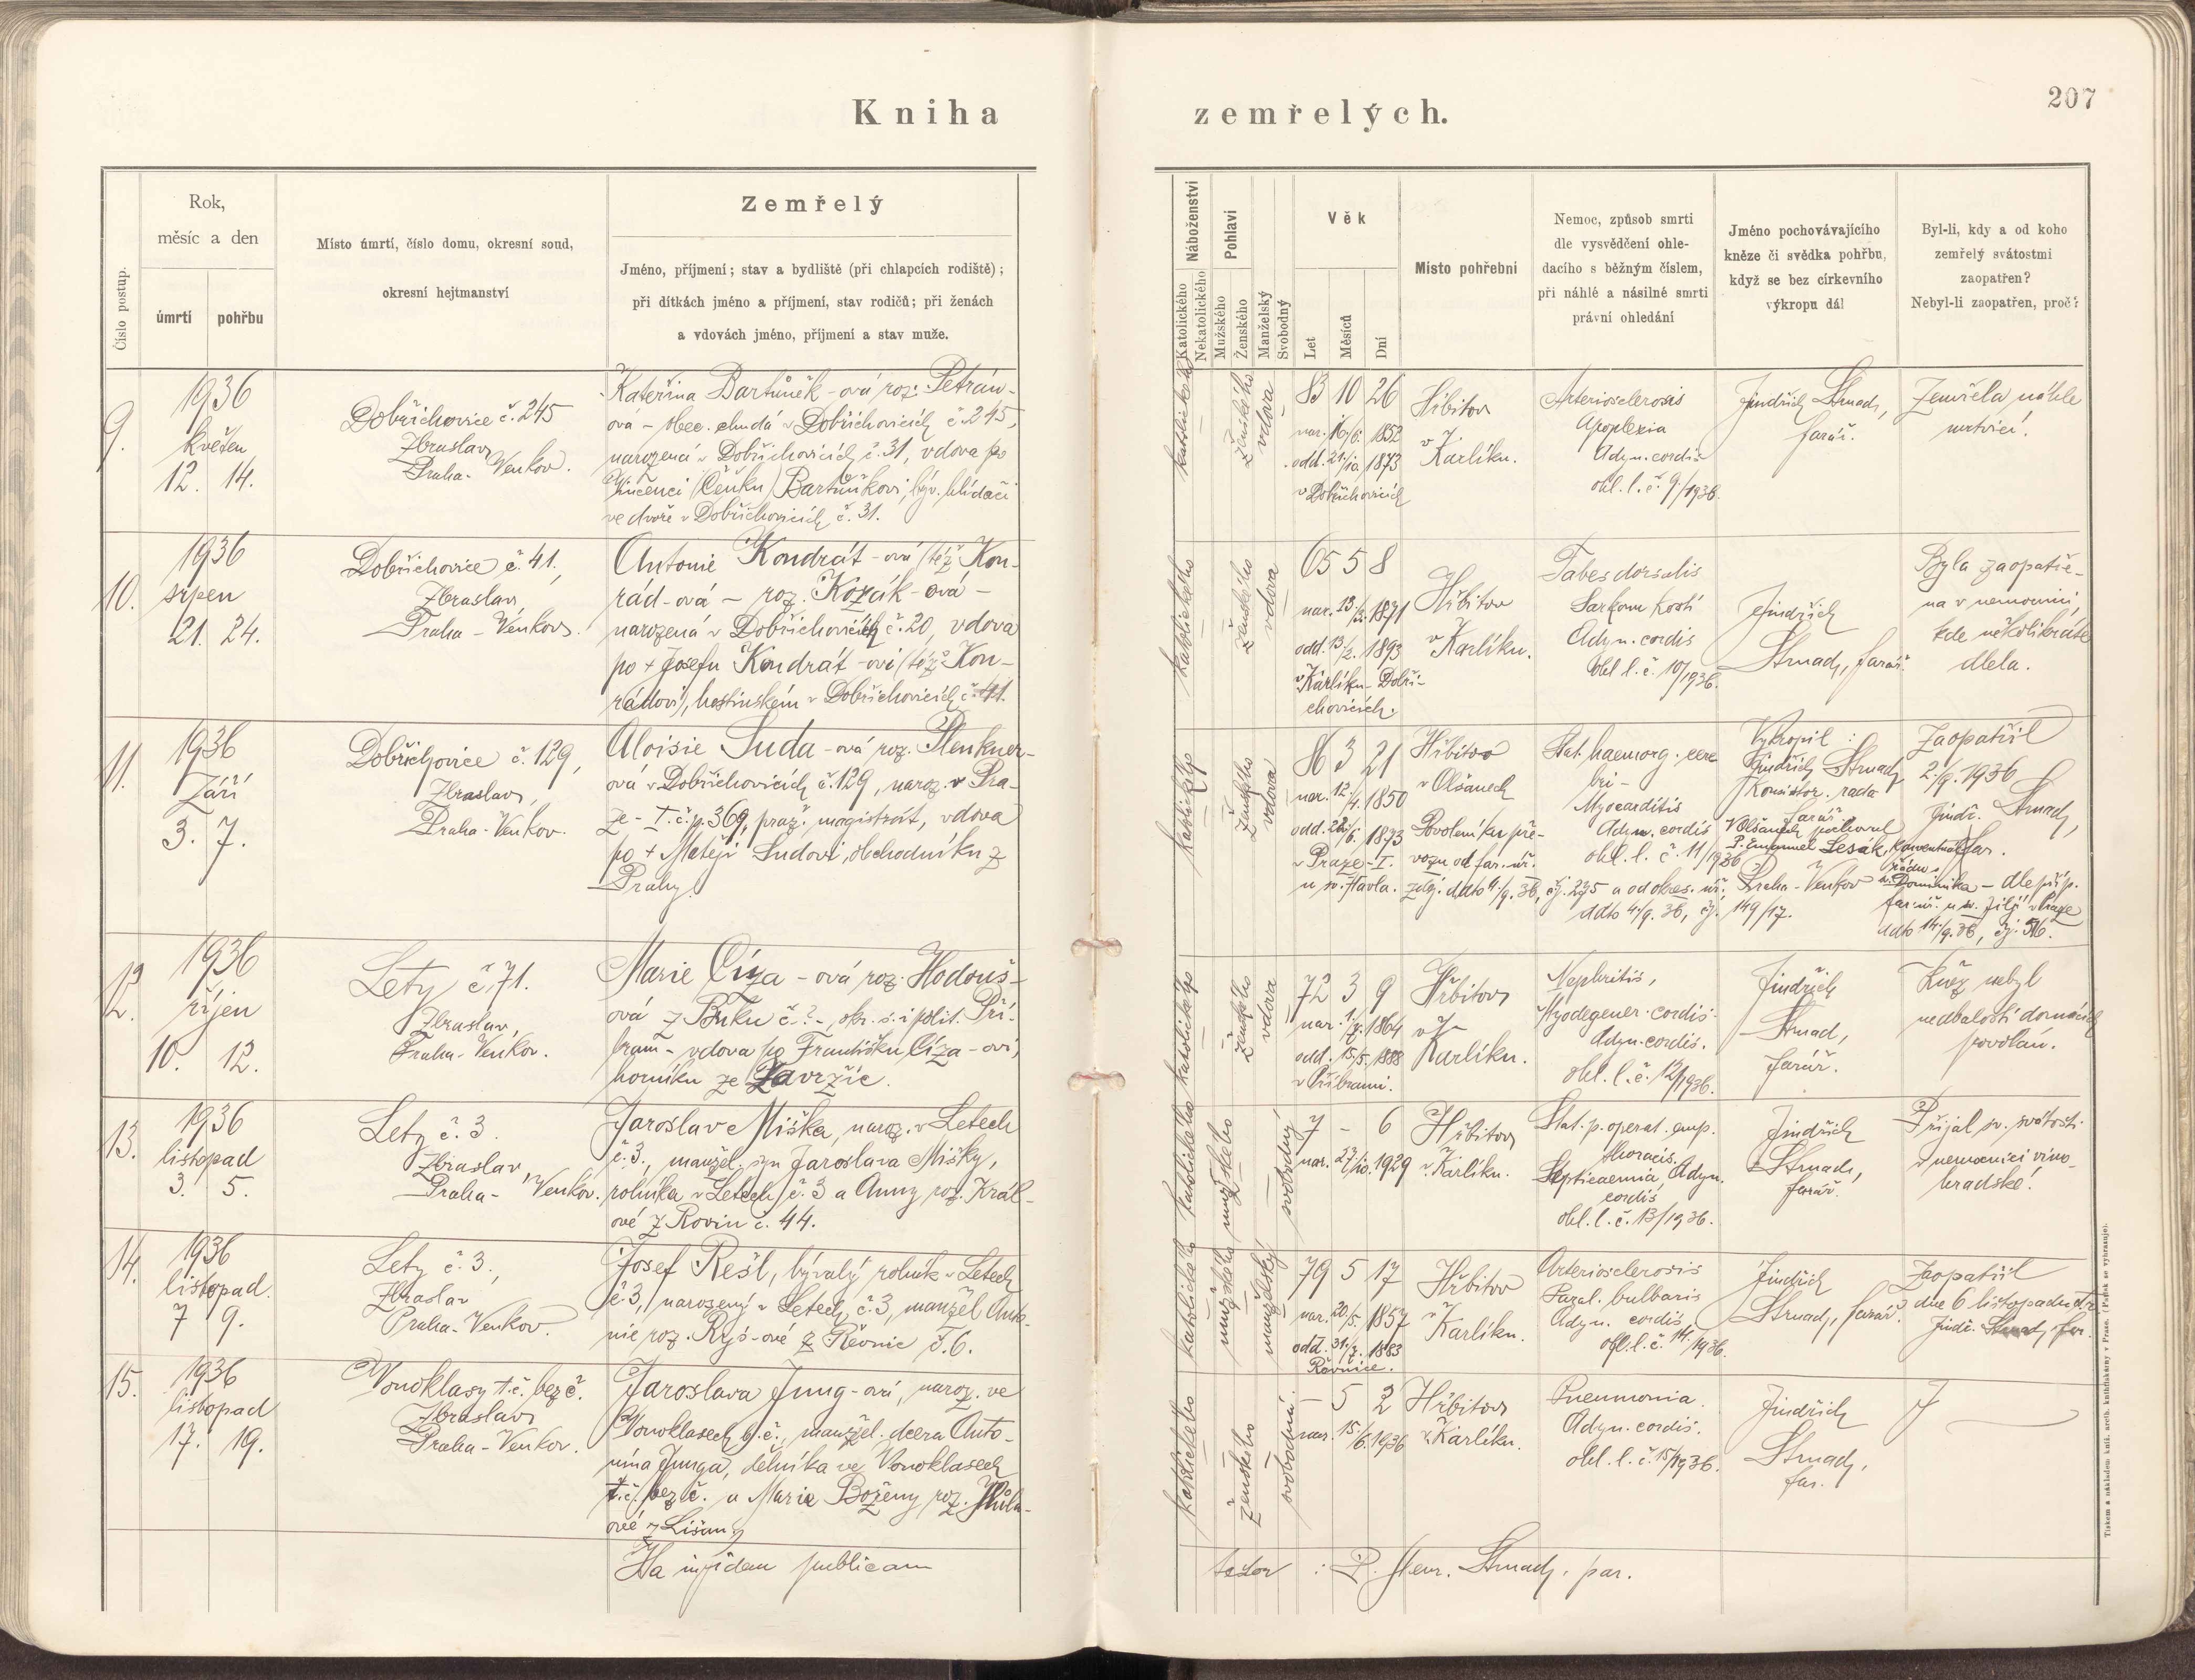 Kniha
zemřelých.
207
Číslo postup.
Rok,
měsíc a den
úmrtí
pohřbu
Místo úmrtí, číslo domu, okresní soud,
okresní hejtmanství
Zemřelý
Jméno, příjmení; stav a bydliště (při chlapcích rodiště);
při dítkách jméno a příjmení, stav rodičů; při ženách
a vdovách jméno, příjmení a stav muže.
Náboženství
Katolického
Nekatolického
Pohlaví
Mužského
Ženského
Manželský
Svobodný
Věk
Let
Měsíců
Dní
Místo pohřební
Nemoc, způsob smrti
dle vysvědčení ohle-
dacího s běžným číslem,
při náhlé a násilné smrti
právní ohledání
Jméno pochovávajícího
kněze či svědka pohřbu,
když se bez církevního
výkropu dál
Byl-li, kdy a od koho
zemřelý svátostmi
zaopatřen?
Nebyl-li zaopatřen, proč?
9.
1936
květen
12. 14.
Dobřichovice č. 245
Zbraslav
Praha-Venkov.
Kateřina Bartůněk-ová roz. Petrán-
ová - obec. chudá v Dobřichovicích č. 245,
narozená v Dobřichovicích č. 31, vdova po
Vincenci (Čeňku) Bartůňkovi, býv. hlídači
ve dvoře v Dobřichovicích č. 31.
katolického
ženského
vdova
83 10 26
nar. 16/6. 1852
odd. 21./10. 1873
v Dobřichovicích
Hřbitov
v
Karlíku.
Arteriosclerosis
Apoplexia
Adyn. cordis
ohl. l. č. 9/1936.
Jindřich Strnad,
farář.
Zemřela náhle
mrtvicí.
10.
1936
srpen
21. 24.
Dobřichovice č. 41.,
Zbraslav
Praha-Venkov.
Antonie Kondrát-ová (též Kon-
rád-ová - roz. Kozák-ová -
narozená v Dobřichovicích č. 20, vdova
po + Josefu Kondrát-ovi (též Kon-
rádovi), hostinském v Dobřichovicích č. 41.
katolického
ženského
vdova
65 5 8
nar. 13./3. 1871
odd. 13/2. 1893
v Karlíku-Dobři-
chovicích.
Hřbitov
v
Karlíku.
Tabes dorsalis
Sarkom kostí
Adyn. cordis
ohl. l. č. 10/1936.
Jindřich
Strnad, farář.
Byla zaopatře-
na v nemocnici,
kde několikráte
dlela.
11.
1936
Září
3. 7.
Dobřichovice č. 129,
Zbraslav,
Praha-Venkov.
Aloisie Suda-ová roz. Plenkner-
ová v Dobřichovicích č. 129, naroz. v Pra-
ze-I. č. p. 369, praž. magistrát, vdova
po + Matěji Sudovi, obchodníku z
Prahy.
katolického
ženského
vdova
86 3 21
nar. 12./4. 1850
odd. 22/6. 1873
v Praze-I.
u sv. Havla.
Hřbitov
v Olšanech
Povolení ku pře-
vozu od far. úř.
zdej. ddto 4./9. 36, čj. 235 a od okres. úř. Praha-Venkov
ddto 4./9. 36, čj. 149/17.
Stat. haemorg. cere
bri-
Myocarditis
Adyn. cordis
ohl. l. č. 11/1936
Vykropil:
Jindřich Strnad
Konsistor. rada
farář.
V Olšanech pochoval
P. Emanuel Lesák, konventuál
řádu
sv. Dominika - dle příp.
far. úř. u sv. Jiljí v Praze
ddto 14./9. 36, čj. 516.
Zaopatřil
2./9. 1936
Jindř. Strnad,
far.
12.
1936
říjen
10. 12.
Lety č. 71.
Zbraslav,
Praha-Venkov.
Marie Cíza-ová roz. Hodouš-
ová z Buku č.?-, okr. s. i polit. Pří-
bram - vdova po Františku Cíza-ovi,
horníku ze Zavržic.
katolického
ženského
vdova
72 3 9
nar. 1./7. 1864
odd. 15./5. 1888
v Příbrami.
Hřbitov
v
Karlíku.
Nephritis,
Myodegener. cordis.
Adyn. cordis.
ohl. l. č. 12/1936.
Jindřich
Strnad,
farář.
Kněz nebyl
nedbalostí domácích
povolán.
13.
1936
listopad
3. 5.
Lety č. 3.
Zbraslav,
Praha-Venkov.
Jaroslav Miška, naroz. v Letech
č. 3., manžel. syn Jaroslava Mišky,
rolníka v Letech č. 3 a Anny roz. Král-
ové z Rovin č. 44.
katolického
mužského
svobodný
7 - 6
nar. 27/10. 1929
Hřbitov
v Karlíku.
Stat. p. operat. emp.
thoracis.
Septicaemia, Adyn.
cordis
ohl. l. č. 13/1936.
Jindřich
Strnad,
farář.
Přijal sv. svátosti
v nemocnici vino-
hradské.
14.
1936
listopad.
7 9.
Lety č. 3.,
Zbraslav
Praha-Venkov.
Josef Rešl, bývalý rolník v Letech
č. 3, narozený v Letech č. 3, manžel Anto-
nie roz. Ryš-ové z Řevnic č. 6.
katolického
mužského
manželský
79 5 17
nar. 20/5. 1857
odd. 31./7. 1883
Řevnice.
Hřbitov
v
Karlíku.
Arteriosclerosis
Paral. bulbaris
Adyn. cordis,
ohl. l. č. 14./1936.
Jindřich
Strnad, farář.
Zaopatřil
dne 6 listopadu t. r.
Jindř. Strnad, far.
15.
1936
listopad
17. 19.
Vonoklasy t. č. bez č.
Zbraslav
Praha-Venkov.
Jaroslava Jung-ová, naroz. ve
Vonoklasech b. č., manžel. dcera Anto-
nína Junga, dělníka ve Vonoklasech
t. č. bez č. a Marie Boženy roz.
ové z Lišan
katolického
ženského
svobodná.
- 5 2
nar. 15/6. 1936
Hřbitov
v Karlíku.
Pneumonia.
Adyn. cordis.
ohl. l. č. 15/1936.
Jindřich
Strnad,
far.
Ita in fidem publicam
testor : P. Henr. Strnad, par.
Tiskem a nákladem kníž. arcib. knihtiskárny v Praze. (Patisk se vyhrazuje).